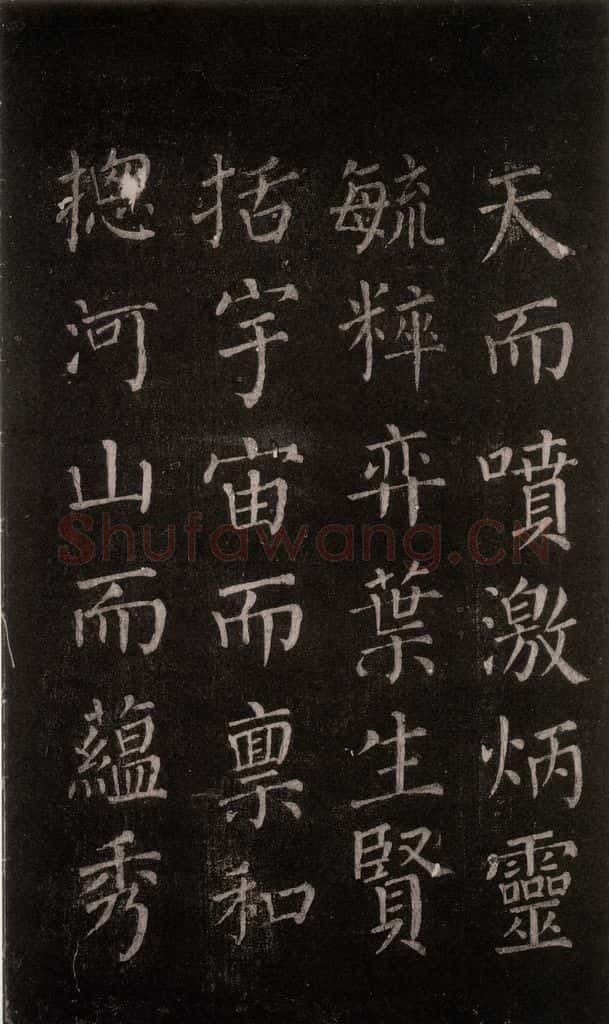 天而噴激炳靈
毓粹弈葉生賢
括宇宙而禀和
揔河山而蘊秀
Shufawang.CN